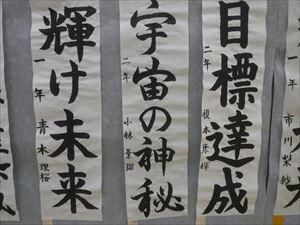 目標達成
二年 榎本康輝
宇宙の神秘
二年 小林
輝け未来
一年 青木理桜
市川梨紗